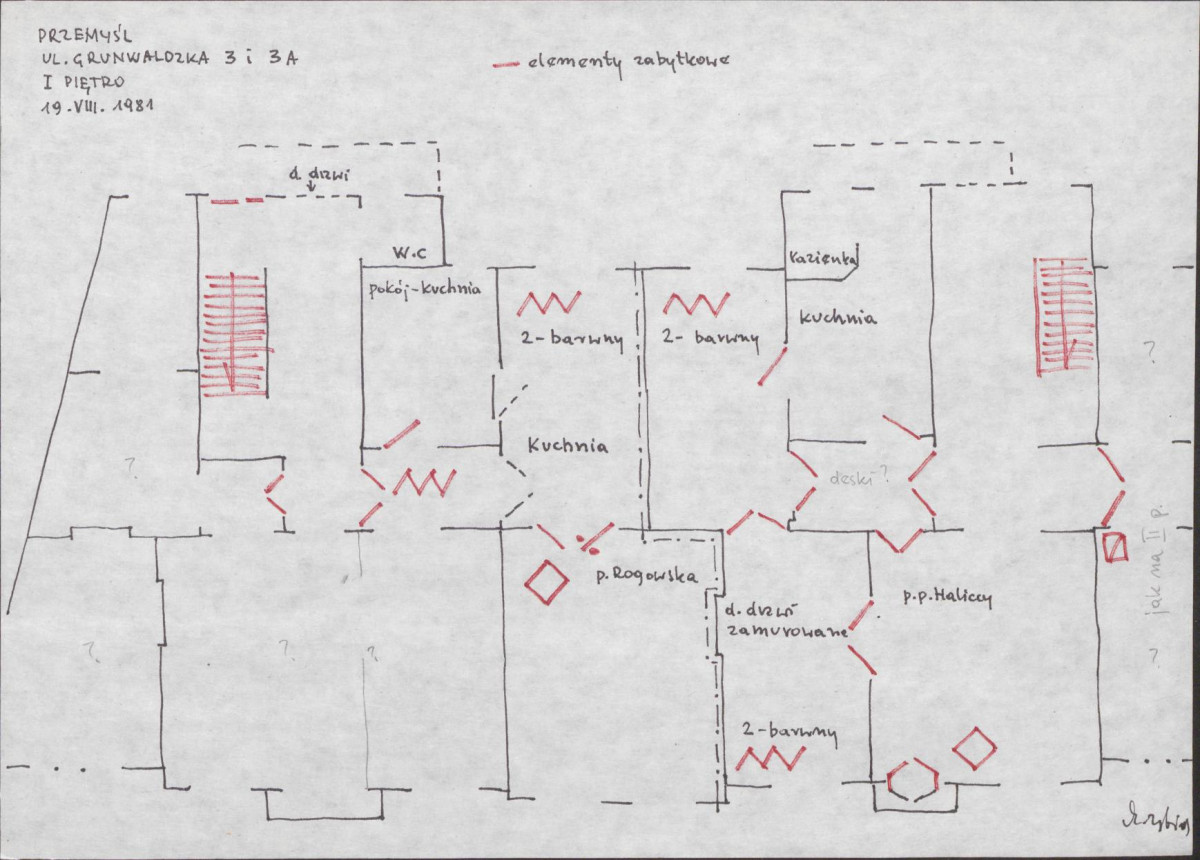 PRZEMYŚL
UL. GRUNWALDZKA 3 i 3A
I PIĘTRO
19. VIII. 1981
elementy zabytkowe
d. drzwi
W.C
pokój-kuchnia
Łazienka
kuchnia
2-barwny
2-barwny
?
Kuchnia
?
deski?
p. Rogowska
p.p. Haliccy
d. drzwi
zamurowane
jak na II p.
?
?
?
?
2-barwny